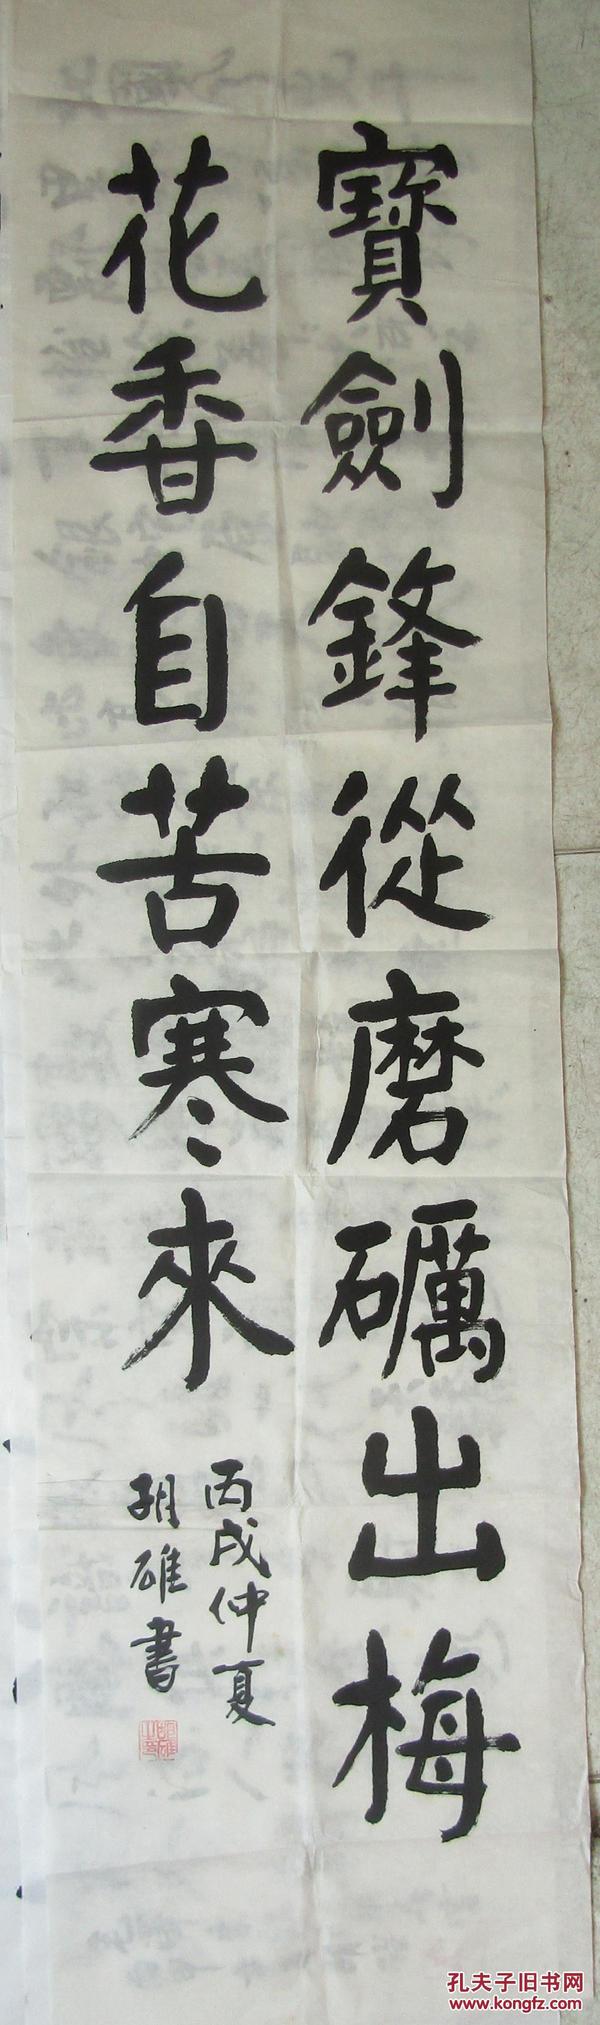 寶劍鋒從磨礪出梅
花香自苦寒來
丙戌仲夏
胡雄書
孔夫子旧书网
www.kongfz.com